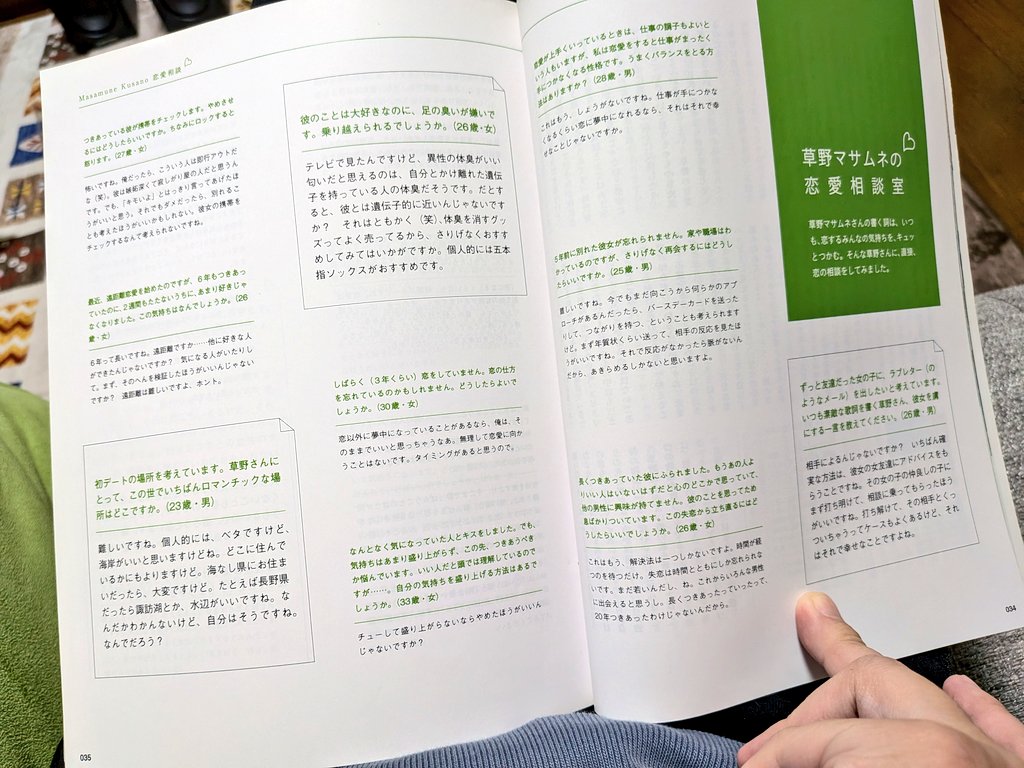 草野マサムネの
恋愛相談室
草野マサムネさんの書く詞は、いつ
も、恋するみんなの気持ちを、キュッ
とつかむ。そんな草野さんに、直撃、
恋の相談をしてみました。
ずっと友達だった女の子に、ラブレター（の
ようなメール）を出したいと考えています。
いつも素敵な歌詞を書く草野さん、彼女を虜
にする一言を教えてください。（26歳・男）
相手によるんじゃないですか？　いちばん確
実な方法は、彼女の女友達にアドバイスをも
らうことですね。その女の子の仲良しの子に
まず打ち明けて、相談に乗ってもらったほう
がいいですね。打ち解けて、その相手とくっ
ついちゃうってケースもよくあるけど、それ
はそれで幸せなことですよね。
034
恋愛が上手くいっているときは、仕事の調子もよいと
いう人もいますが、私は恋愛をすると仕事がまったく
手につかなくなる性格です。うまくバランスをとる方
法はありますか？（28歳・男）
これはもう、しょうがないですね。仕事が手につかな
くなるくらい恋に夢中になれるなら、それはそれで幸
せなことじゃないですか。
5年前に別れた彼女が忘れられません。家や職場はわ
かっているのですが、さりげなく再会するにはどうし
たらいいですか。（25歳・男）
難しいですね。今でもまだ向こうから何らかのアプ
ローチがあるんだったら、バースデーカードを送った
りして、つながりを持つ、ということも考えられます
けど。まず年賀状くらい送って、相手の反応を見たほ
うがいいですね。それで反応がなかったら脈がないん
だから、あきらめるしかないと思いますよ。
長くつきあっていた彼にふられました。もうあの人よ
りいい人はいないはずだと心のどこかで思っていて、
他の男性に興味が持てません。彼のことを思ってため
息ばかりついています。この失恋から立ち直るにはど
うしたらいいでしょうか。（26歳・女）
これはもう、解決法は一つしかないですよ。時間が経
つのを待つだけ。失恋は時間とともにしか忘れられな
いです。まだ若いんだし、ね。これからいろんな男性
に出会えると思うし。長くつきあったっていったって、
20年つきあったわけじゃないんだから。
Masamune Kusano 恋愛相談
彼のことは大好きなのに、足の臭いが嫌いで
す。乗り越えられるでしょうか。（26歳・女）
テレビで見たんですけど、異性の体臭がいい
匂いだと思えるのは、自分とかけ離れた遺伝
子を持っている人の体臭だそうです。だとす
ると、彼とは遺伝子的に近いんじゃないです
か？　それはともかく（笑）、体臭を消すグッ
ズってよく売ってるから、さりげなくおすす
めしてみてはいかがですか。個人的には五本
指ソックスがおすすめです。
しばらく（3年くらい）恋をしていません。恋の仕方
を忘れているのかもしれません。どうしたらよいで
しょうか。（30歳・女）
恋以外に夢中になっていることがあるなら、俺は、そ
のままでいいと思っちゃうなあ。無理して恋愛に向か
うことはないです。タイミングがあると思うので。
なんとなく気になっていた人とキスをしました。でも、
気持ちはあまり盛り上がらず、この先、つきあうべき
か悩んでいます。いい人だと頭では理解しているので
すが……。自分の気持ちを盛り上げる方法はあるで
しょうか。（33歳・女）
チューして盛り上がらないならやめたほうがいいん
じゃないですか？
つきあっている彼が携帯をチェックします。やめさせ
るにはどうしたらいいですか。ちなみにロックすると
怒ります。（27歳・女）
怖いですね。俺だったら、こういう人は即行アウトだ
な（笑）。彼は嫉妬深くて寂しがり屋の人だと思うん
です。でも、「キモいよ」とはっきり言ってあげたほ
うがいいと思う。それでもダメだったら、別れるこ
とも考えたほうがいいかもしれない。彼女の携帯を
チェックするなんて考えられないですね。
最近、遠距離恋愛を始めたのですが、6年もつきあっ
ていたのに、2週間もたたないうちに、あまり好きじゃ
なくなりました。この気持ちはなんでしょうか。（26
歳・女）
6年って長いですね。遠距離ですか……他に好きな人
ができたんじゃないですか？　気になる人がいたりし
て。まず、そのへんを検証したほうがいいんじゃない
ですか？　遠距離は難しいですよ、ホント。
初デートの場所を考えています。草野さんに
とって、この世でいちばんロマンチックな場
所はどこですか。（23歳・男）
難しいですね。個人的には、ベタですけど、
海岸がいいと思いますけどね。どこに住んで
いるかにもよりますけど。海なし県にお住ま
いだったら、大変ですけど。たとえば長野県
だったら諏訪湖とか、水辺がいいですね。な
んだかわかんないけど、自分はそうですね。
なんでだろう？
035